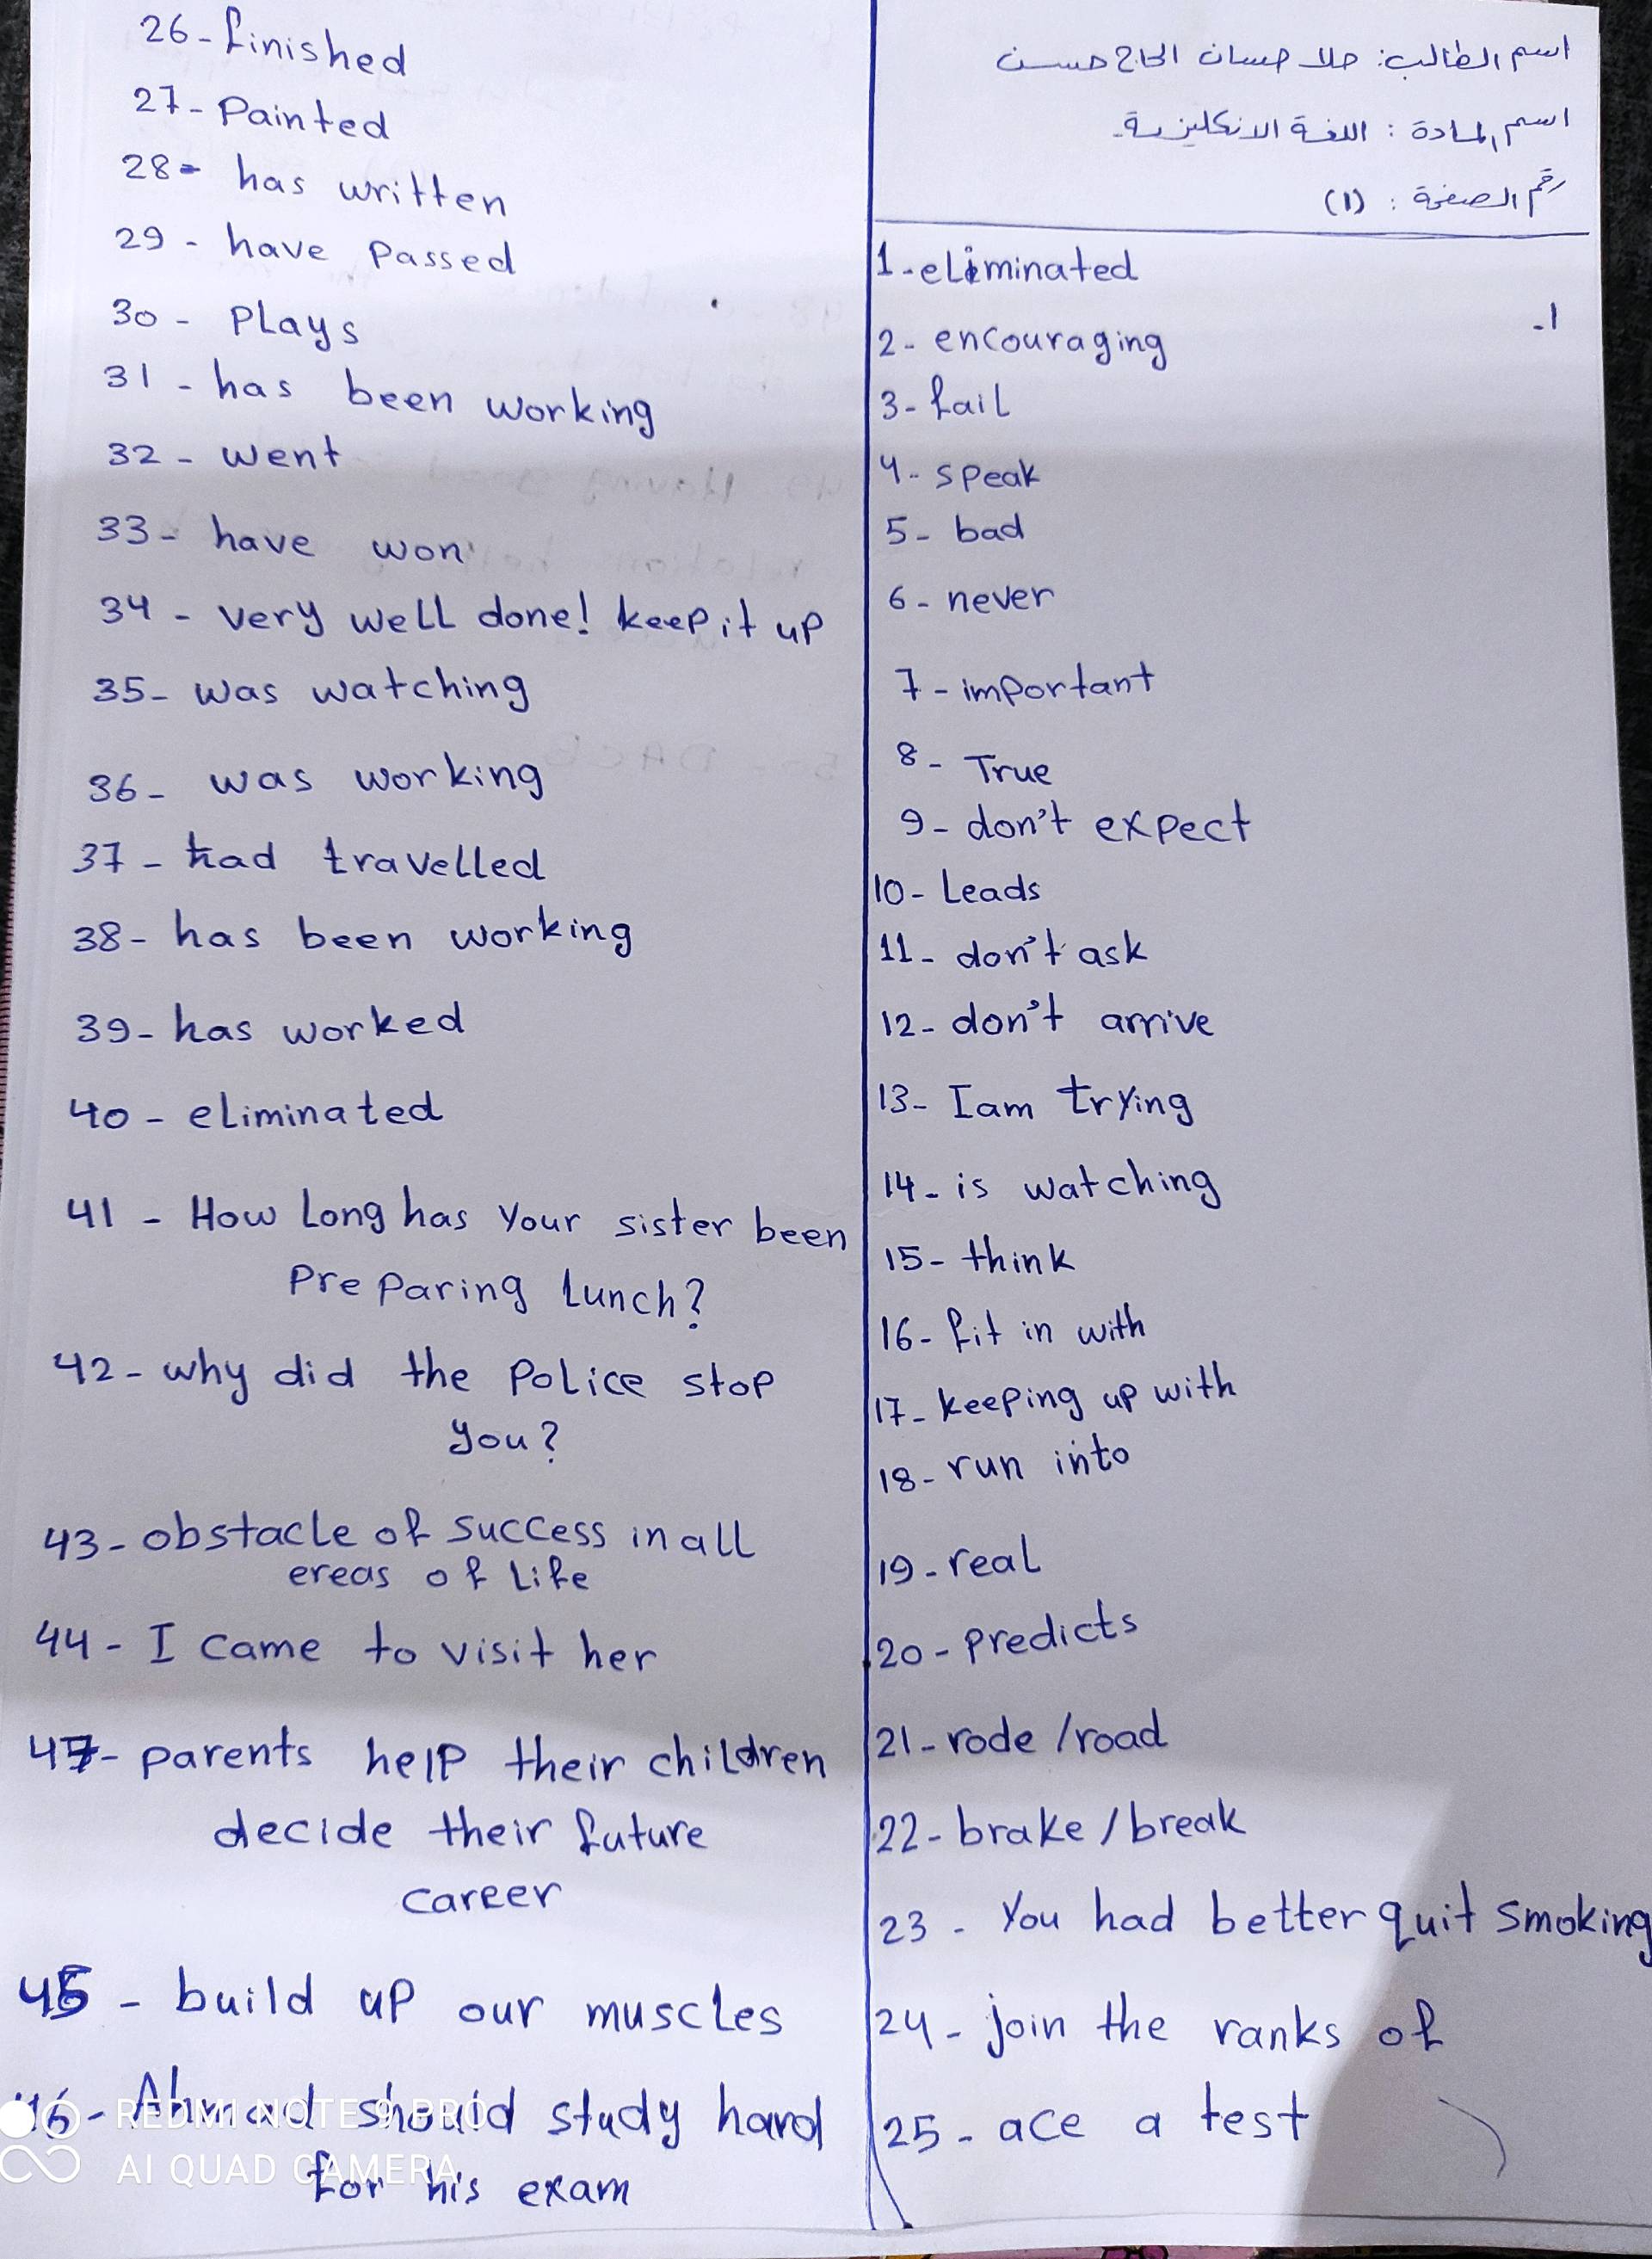 اسم الطالب: حلا حسان الحاج حسن
اسم المادة: اللغة الانكليزية
رقم الصفحة: (1)
1-
1-eliminated
2- encouraging
3- fail
4- speak
5- bad
6- never
7- important
8- True
9- don't expect
10- Leads
11- don't ask
12- don't arrive
13- I am trying
14- is watching
15- think
16- fit in with
17- keeping up with
18- run into
19- real
20- predicts
21- rode / road
22- brake / break
23- You had better quit smoking
24- join the ranks of
25- ace a test
26- finished
27- Painted
28- has written
29- have Passed
30- PLays
31- has been working
32- went
33- have won
34- very well done! keep it up
35- was watching
36- was working
37- had travelled
38- has been working
39- has worked
40- eliminated
41- How Long has your sister been
Preparing Lunch?
42- why did the Police stop
you?
43- obstacle of success in all
ereas of Life
44- I came to visit her
47- parents help their children
decide their future
career
45- build up our muscles
46- Ahmad should study hard
for his exam
REDMI NOTE 9 PRO
AI QUAD CAMERA